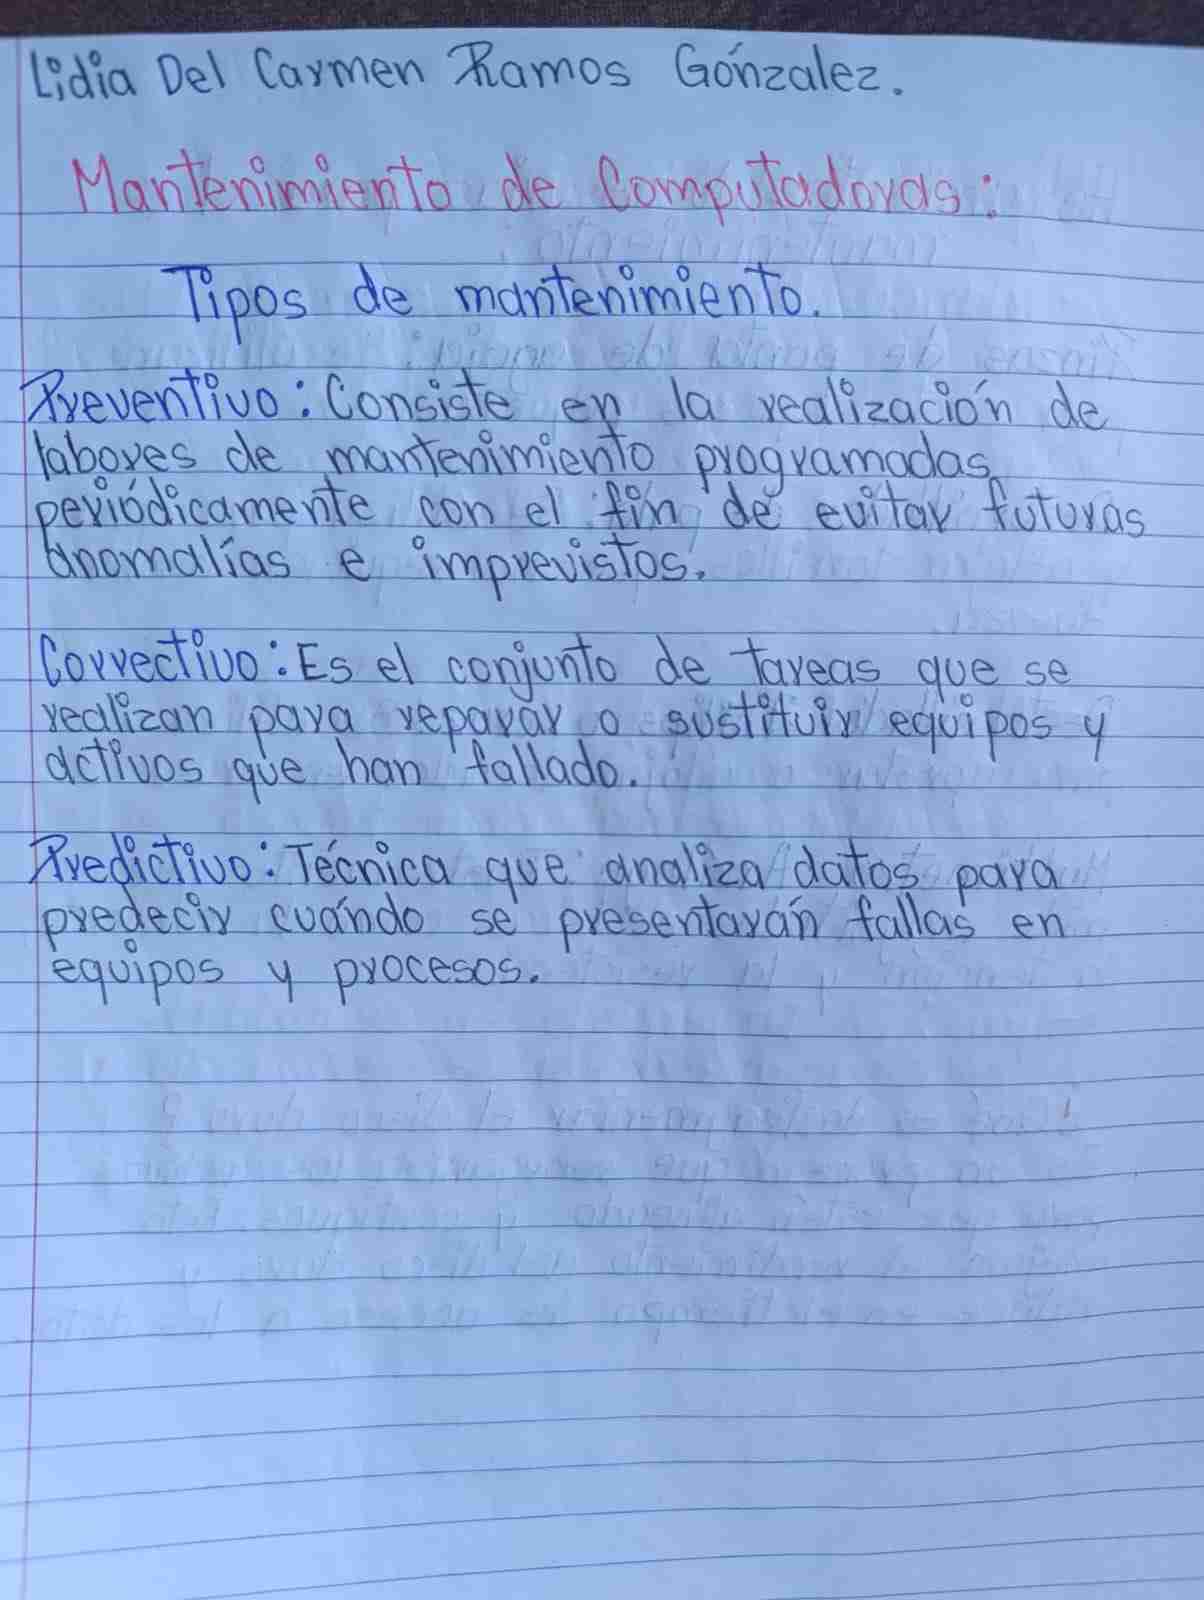 Lidia Del Carmen Ramos Gónzalez.
Mantenimiento de Computadoras:
Tipos de mantenimiento.
Preventivo: Consiste en la realización de
labores de mantenimiento programadas
periódicamente con el fin de evitar futuras
anomalías e imprevistos.
Correctivo: Es el conjunto de tareas que se
realizan para reparar o sustituir equipos y
activos que han fallado.
Predictivo: Técnica que analiza datos para
predecir cuándo se presentarán fallas en
equipos y procesos.